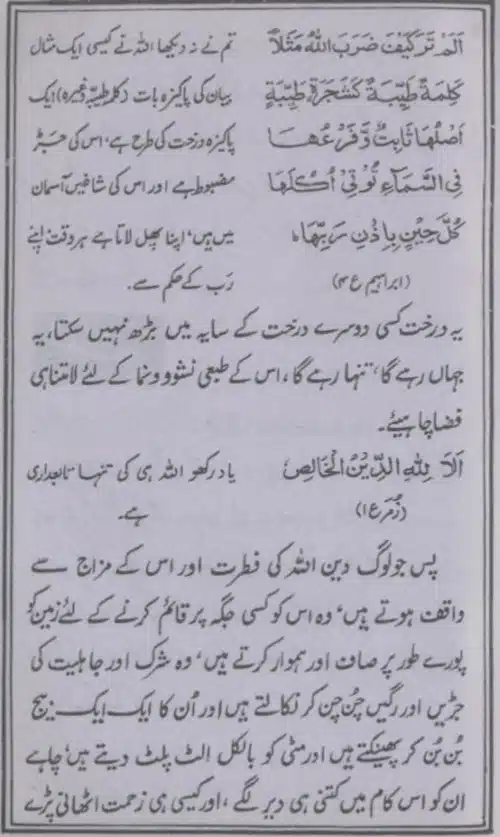 اَلَمْ تَرَكَيْفَ ضَرَبَ اللّٰهُ مَثَلاً
كَلِمَةً طَيِّبَةً كَشَجَرَةٍ طَيِّبَةٍ
اَصْلُهَا ثَابِتٌ وَّفَرْعُهَا
فِي السَّمَاءِ تُؤْتِيْ اُكُلَهَا
كُلَّ حِيْنٍ بِاِذْنِ رَبِّهَاه
(ابراہیم ع ۴)
تم نے نہ دیکھا اللہ نے کیسی ایک مثال
بیان کی پاکیزہ بات (کلمہ طیبہ وغیرہ) ایک
پاکیزہ درخت کی طرح ہے، اس کی جڑ
مضبوط ہے اور اس کی شاخیں آسمان
میں ہیں، اپنا پھل لاتا ہے ہر وقت اپنے
رب کے حکم سے۔
یہ درخت کسی دوسرے درخت کے سایہ میں بڑھ نہیں سکتا، یہ
جہاں رہے گا، تنہا رہے گا، اس کے طبعی نشوونما کے لئے لامتناہی
فضا چاہیئے۔
اَلَا لِلّٰهِ الدِّيْنُ الْخَالِصُ
(زمر ع ۱)
یاد رکھو اللہ ہی کی تنہا تابعداری
ہے۔
پس جو لوگ دین اللہ کی فطرت اور اس کے مزاج سے
واقف ہوتے ہیں، وہ اس کو کسی جگہ پر قائم کرنے کے لئے زمین کو
پورے طور پر صاف اور ہموار کرتے ہیں، وہ شرک اور جاہلیت کی
جڑیں اور رگیں چُن چُن کر نکالتے ہیں اور اُن کا ایک ایک بیج
بُن بُن کر پھینکتے ہیں اور مٹی کو بالکل الٹ پلٹ دیتے ہیں، چاہے
ان کو اس کام میں کتنی ہی دیر لگے، اور کیسی ہی زحمت اٹھانی پڑے